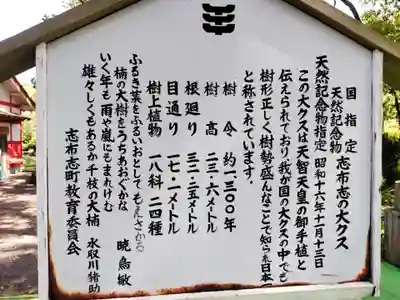 国指定
天然記念物 志布志の大クス
天然記念物指定 昭和十六年十月十三日
この大クスは天智天皇の御手植と
伝えられており我が国の大クスの中でも
樹形正しく樹勢盛んなことで知られ日本一
と称されています。
樹令 約一三〇〇年
樹高 二三・六メートル
根廻り 三二・三五メートル
目通り 一七・一メートル
樹上植物 一八科 二四種
ふるき葉をふるいおとしてもえさかる
楠の大樹をうちあおぐかな 暁烏敏
いく年も雨や嵐にもまれけむ
雄々しくもあるか千枝の大楠 水取川猪助
志布志町教育委員会